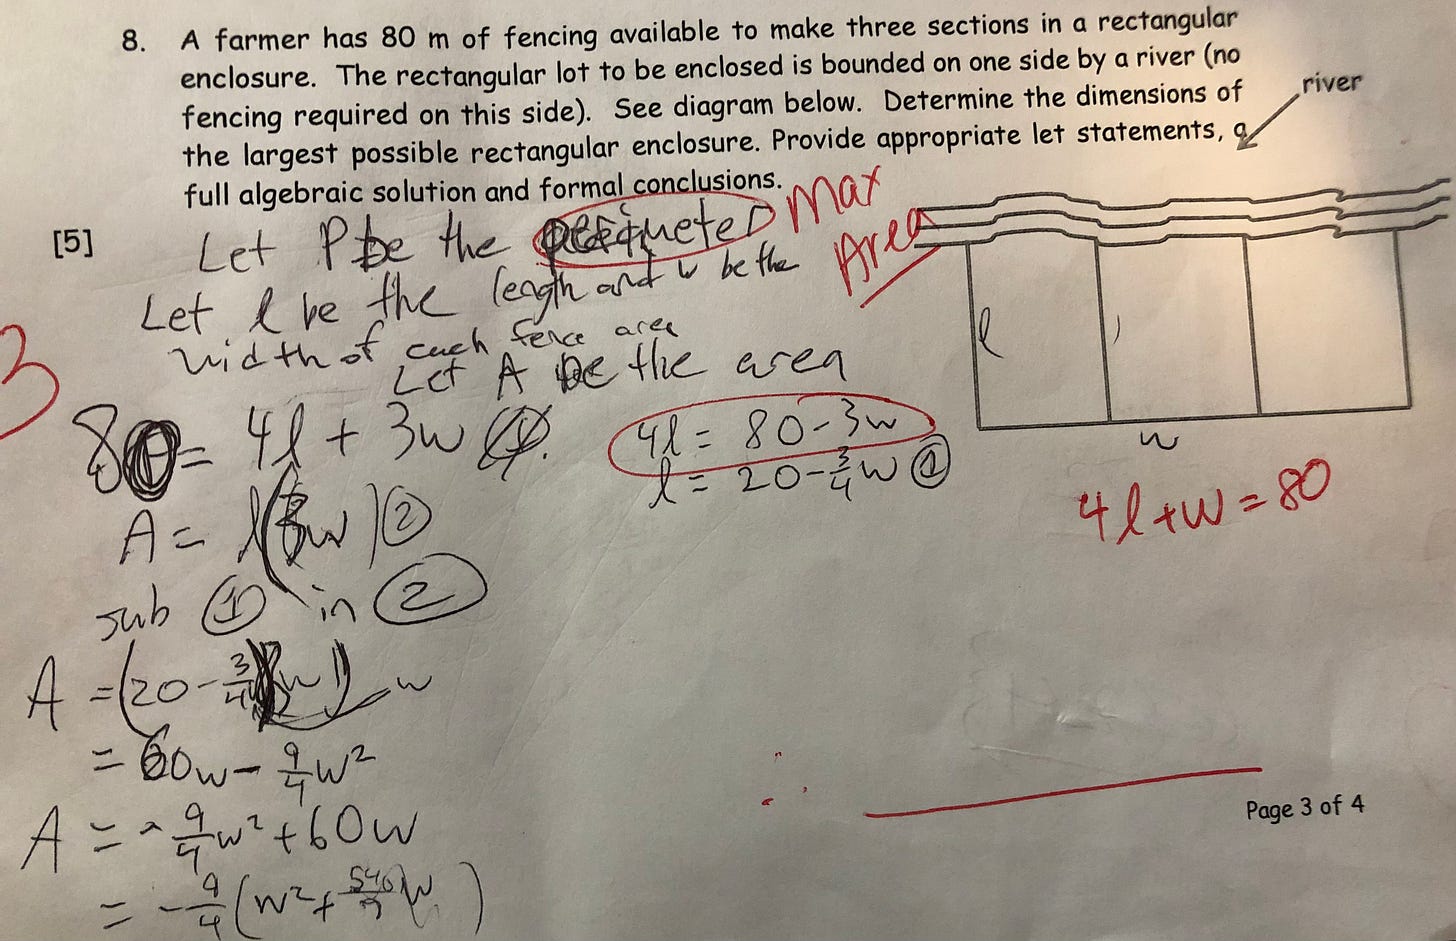 8. A farmer has 80 m of fencing available to make three sections in a rectangular
enclosure. The rectangular lot to be enclosed is bounded on one side by a river (no
fencing required on this side). See diagram below. Determine the dimensions of
the largest possible rectangular enclosure. Provide appropriate let statements, a
full algebraic solution and formal conclusions.
river
[5]
Let P be the perimeter
Max
Area
Let l be the length and w be the
width of each fence area
Let A be the area
3
80 = 4l + 3w ①.
4l = 80 - 3w
l = 20 - 3/4 w ①
A = l(3w) ②
sub ① in ②
A = (20 - 3/4 w
w
= 60w - 9/4 w²
A = - 9/4 w² + 60w
= - 9/4 (w² + w )
l
w
4l + w = 80
∴
Page 3 of 4